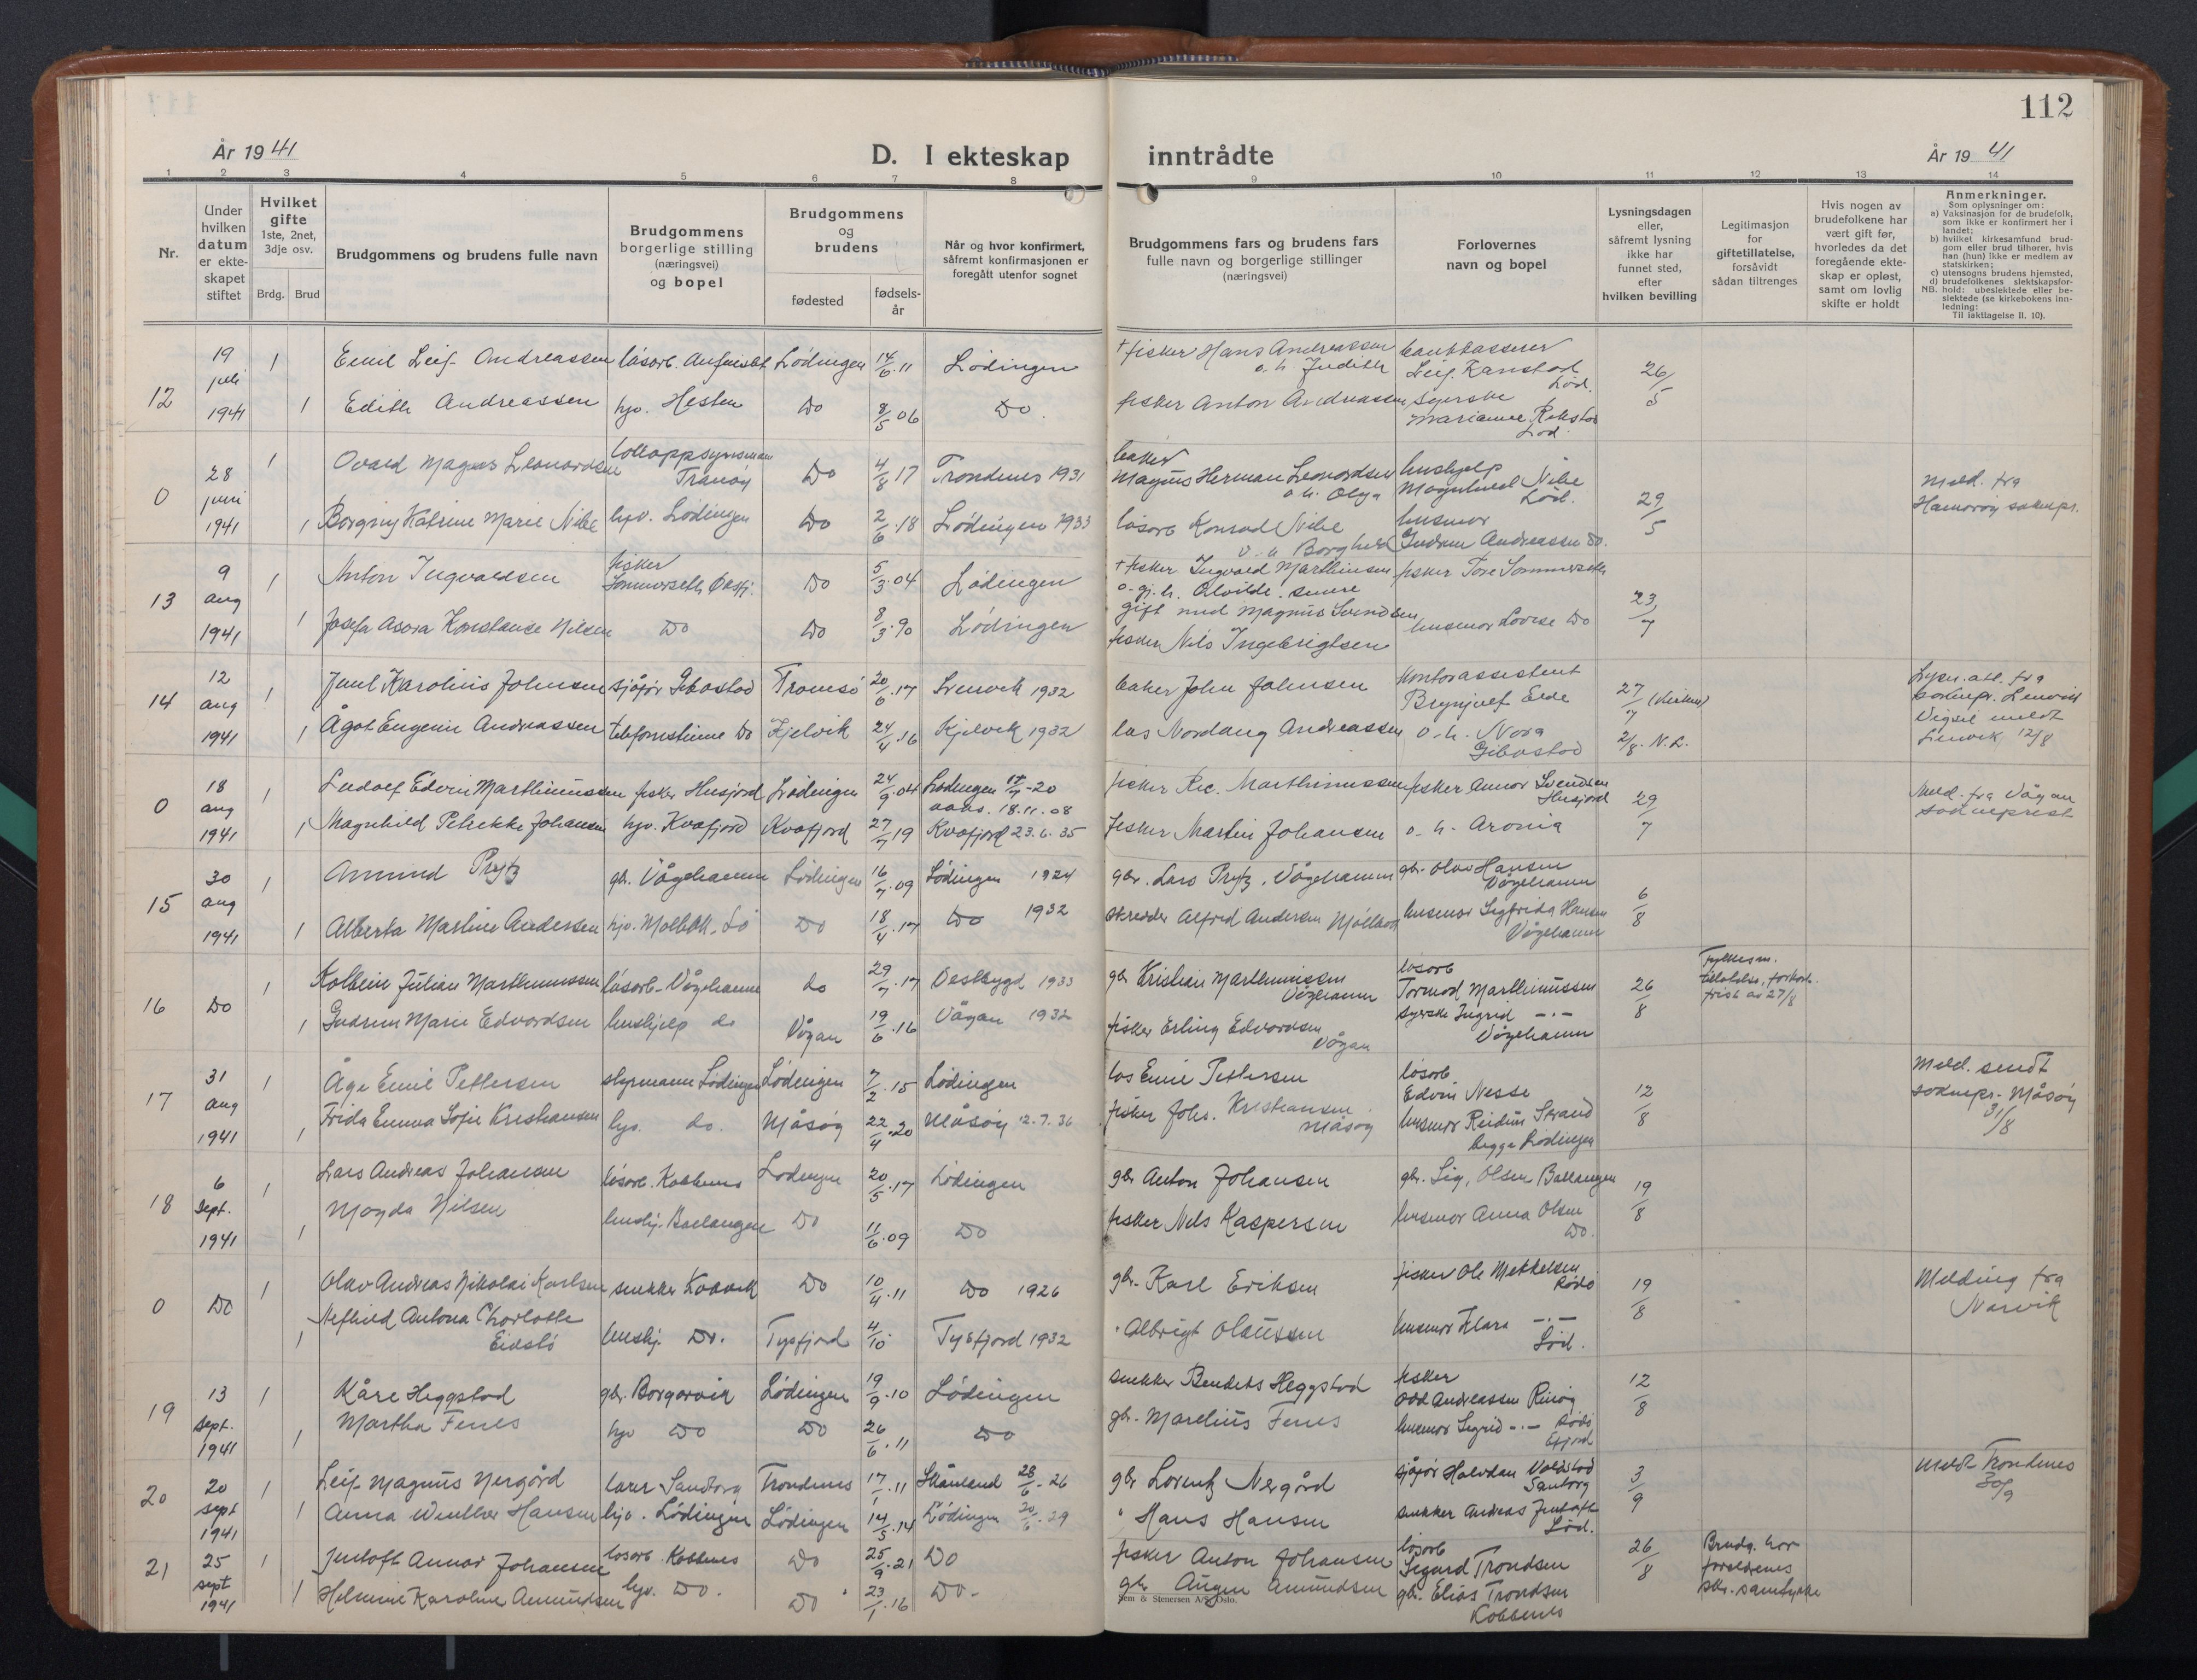 112
År 1941
D. I ekteskap
inntrådte
År 1941
1 2 3 4 5 6 7 8 9 10 11 12 13 14
Nr.
Under
hvilken
datum
er ekte-
skapet
stiftet
Hvilket
gifte
1ste, 2net,
3dje osv.
Brdg. Brud
Brudgommens og brudens fulle navn
Brudgommens
borgerlige stilling
(næringsvei)
og bopel
Brudgommens
og
brudens
fødested
fødsels-
år
Når og hvor konfirmert,
såfremt konfirmasjonen er
foregått utenfor sognet
Brudgommens fars og brudens fars
fulle navn og borgerlige stillinger
(næringsvei)
Forlovernes
navn og bopel
Lysningsdagen
eller,
såfremt lysning
ikke har
funnet sted,
efter
hvilken bevilling
Legitimasjon
for
giftetillatelse,
forsåvidt
sådan tiltrenges
Hvis nogen av
brudefolkene har
vært gift før,
hvorledes da det
foregående ekte-
skap er opløst,
samt om lovlig
skifte er holdt
Anmerkninger.
Som oplysninger om:
a) Vaksinasjon for de brudefolk,
som ikke er konfirmert her i
landet;
b) hvilket kirkesamfund brud-
gom eller brud tilhører, hvis
han (hun) ikke er medlem av
statskirken;
c) utensogns brudens hjemsted,
d) brudefolkenes slektskapsfor-
NB. hold: ubeslektede eller be-
slektede (se kirkebokens inn-
ledning:
Til iakttagelse II. 10).
12 19 juli 1941
1 Emil Leif Andreassen løsarb. Lødingen 14/6.11 Lødingen
+ fisker Hans Andreassen o. h. Judith
bankkasserer Leif Kanstad Lød.
26/5
1 Edith Andreassen hjv. Hesten Do 8/5 06 Do.
fisker Anton Andreassen
syerske Marianne Rekstad Lød.
0 28 juni 1941
1 Magnus Leonardsen tolloppsynsmann Tranøy Do 4/8 17 Trondenes 1931
baker Magnus Herman Leonardsen o. h. Olga
hushjelp Magnhild Nibe Lød.
29/5
Meld. fra
Hamarøy soknepr.
1 Borgny Katrine Marie Nibe hjv. Lødingen Do 2/6.18 Lødingen 1933
løsarb Konrad Nibe o. h Borghild
husmor Gudrun Andreassen Do.
13 9 aug 1941
1 Anton Ingvaldsen fisker Sommerseth Øksfj. Do 5/3.04 Lødingen
+ fisker Ingvald Marthinsen
o. gj. h. Alvilde. senere
gift med Magnus Svendsen
fisker Tore Sommerseth
23/7
1 Josefa Asora Konstanse Nilsen Do Do 8/3.90 Lødingen
fisker Nils Ingebrigtsen
husmor Lovise Do
14 12 aug 1941
1 Juul Karolius Johnsen sjåfør Gibostad Tromsø 20/6.17 Lenvik 1932
baker John Johnsen
kontorassistent Brynjulf Eide
27/7 (Kirken)
Lysn. att. fra
soknepr. Lenvik
Vigsel meldt
Lenvik 12/8
1 Ågot Eugenie Andreassen telefonistinne Do Kjelvik 24/4.16 Kjelvik 1932
los Nordang Andreassen
o. h. Nora Gibostad
2/8. N.L.
0 18 aug 1941
1 Ludolf Edvin Marthinussen fisker Husjord Lødingen 24/9.04 Lødingen -20
18.11.08
fisker Marthinussen
fisker Annar Svendsen Husjord
29/7
Meld. fra Vågan
sokneprest
1 Magnhild Petrikke Johansen hjv. Kvæfjord Kvæfjord 27/7 19 Kvæfjord 23.6.35
fisker Martin Johansen
o. h. Aronia
15 30 aug 1941
1 Amund Prytz gbr. Vågehamn Lødingen 16/7.09 Lødingen 1924
gbr. Lars Prytz, Vågehamn
gbr. Olav Hansen Vågehamn
6/8
1 Alberta Marline Andersen hjv. Molbakk. Lø Do 18/4.17 Do 1932
skredder Alfred Andersen
husmor Sigfrida Hansen Vågehamn
16 Do
1 Kolbein Julian Marthinussen løsarb. Vågehamn do 29/7.17 Vestbygd 1933
gbr Kristian Marthinussen Vågehamn
løsarb Tormod Marthinussen
26/8
Fylkesm.
tillatelse, forkort.
frist av 27/8
1 Gudrun Marie Edvardsen hushjelp do Vågan 19/6.16 Vågan 1932
fisker Erling Edvardsen Vågan
syerske Ingrid -"- Vågehamn
17 31 aug 1941
1 Åge Emil Pettersen styrmann Lødingen Lødingen 7/2.15 Lødingen
los Emil Pettersen
løsarb Edvin Nesse
12/8
Meld. sendt
soknepr. Måsøy
31/8
1 Frida Emma Sofie Kristiansen hjv. do. Måsøy 22/4.20 Måsøy 12.7.36
fisker Johs. Kristiansen Måsøy
husmor Reidun Strand
begge Lødingen
18 6 Sept. 1941
1 Lars Andreas Johansen løsarb. Kobbenes Lødingen 20/5.17 Lødingen
gbr Anton Johansen
gbr. Sig. Olsen Ballangen
19/8
1 Magda Nilsen hushj. Ballangen Do 11/6.09 Do
fisker Nils Kaspersen
husmor Anna Olsen Do.
0 Do
1 Olav Andreas Nikolai Karlsen snekker Do 10/4.11 Do 1926
gbr. Karl Eriksen
fisker Ole Mekkelsen Rødø
19/8
Melding fra
Narvik
1 Antona Charlotte Eidslø hushj. Do. Tysfjord 4/10 Tysfjord 1932
" Albrigt Olaussen
husmor Klara -"- Lød.
19 13 Sept. 1941
1 Kåre Heggstad gbr. Borgarvik Lødingen 19/9.10 Lødingen
snekker Heggstad
fisker Odd Andreassen Rinøy
12/8
1 Martha Fenes hjv Do Do 26/6.11 Do
gbr. Marelius Fenes
husmor Sigrid -"- Efjord
20 20 sept 1941
1 Leif Magnus Nergård lærer Sandtorg Trondenes 17/1.11 Skånland 28/6-26
gbr Lorentz Nergård
sjåfør Halvdan Voldstad Santorg
3/9
Meldt Trondenes
30/9
1 Anna Winther Hansen hjv. Lødingen Lødingen 14/5.14 Lødingen 29
" Hans Hansen
snekker Andreas Jentoft Lød.
21 25 sept 1941
1 Jentoft Annar Johansen løsarb Kobbenes Do 25/9.21 Do
fisker Anton Johansen
løsarb Sigurd Trondsen
26/8
Brudg. har
foreldrenes
skr. samtykke
1 Helmine Karoline Amundsen hjv. Do. Do 23/1.16 Do.
gbr. Augen Amundsen
gbr. Elias Trondsen
Kobbenes
Sem & Stenersen A/S, Oslo.